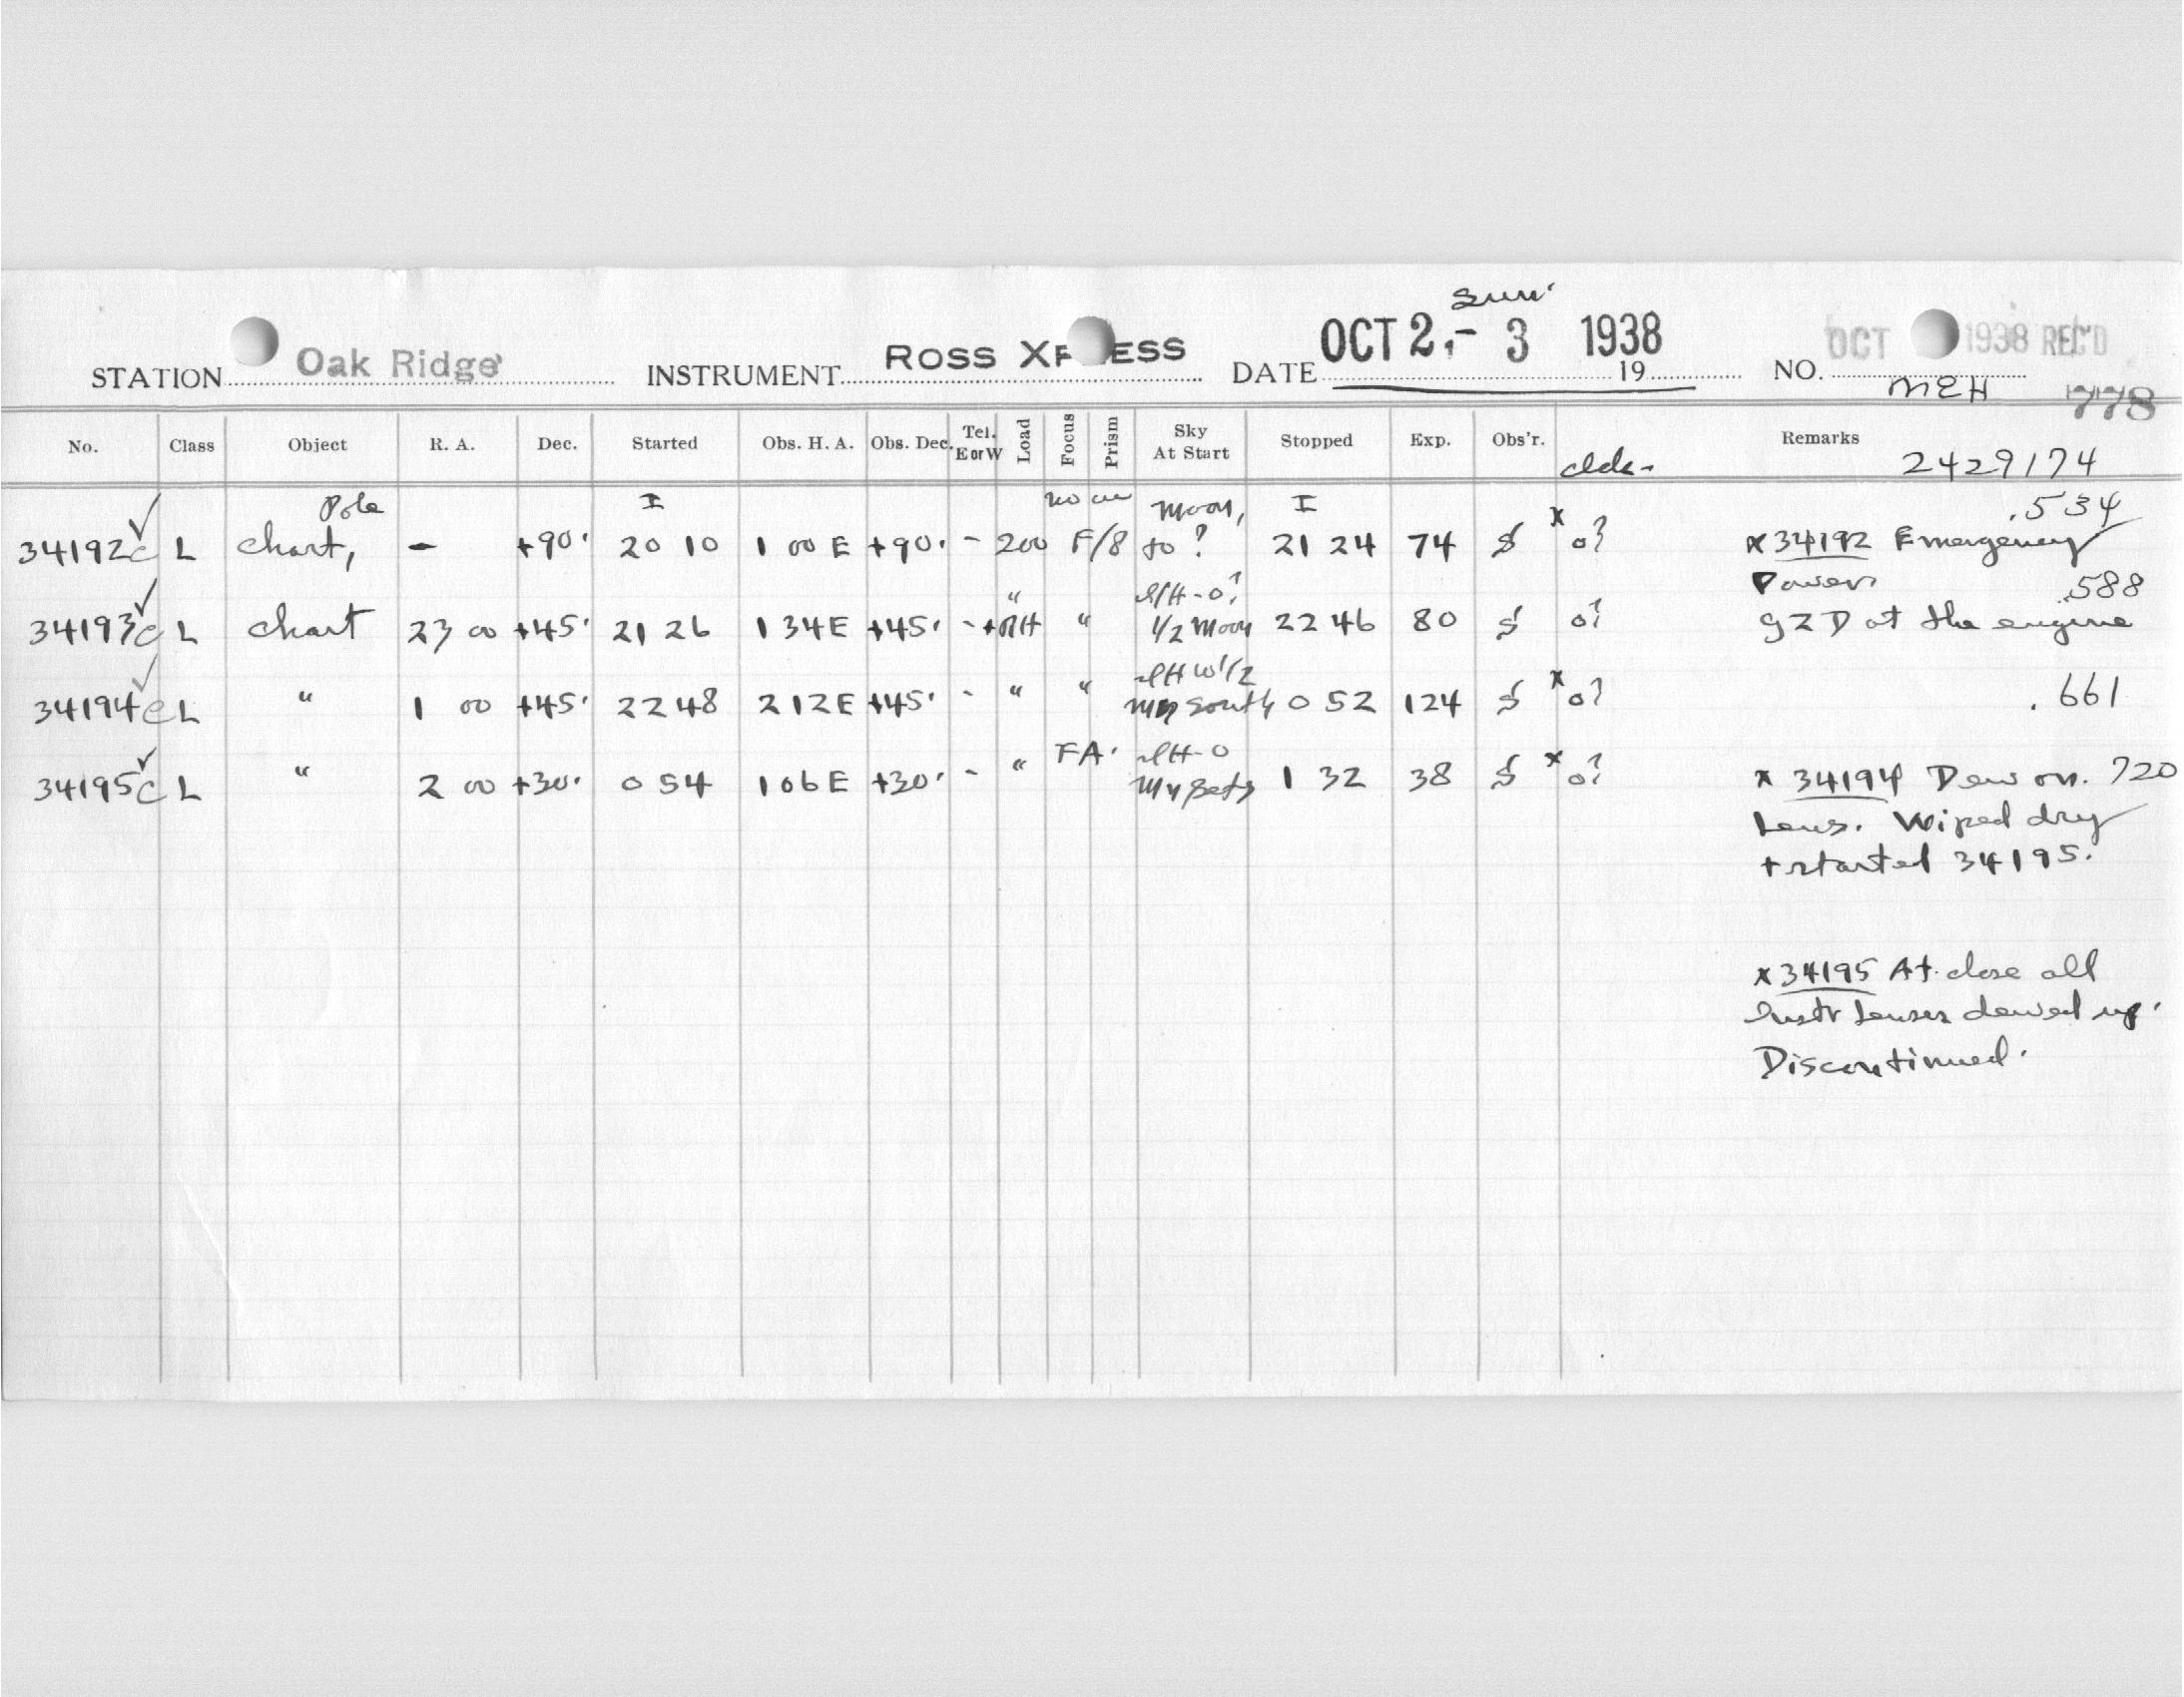 Sun.
STATION Oak Ridge INSTRUMENT ROSS XP ESS DATE OCT 2,- 3 1938 19 NO. OCT 1938 REC'D
MEH 778
No. Class Object R. A. Dec. Started Obs. H. A. Obs. Dec. Tel. E or W Load Focus Prism Sky At Start Stopped Exp. Obs'r. Remarks
2429174
Pole I no Moon, I .534
34192c L Chart, - +90° 20 10 1 00 E +90° - 200 F/8 to ? 21 24 74 S x o? x 34192 Emergency
Power .588
34193c L Chart 23 00 +45° 21 26 1 34E +45° - " 1/2 Moon 22 46 80 S o? at the engine
34194c L " 1 00 +45° 22 48 2 12E +45° - " " South 0 52 124 S x o? .661
FA.
34195c L " 2 00 +30° 0 54 1 06 E +30° - " 1 32 38 S x o? x 34194 Dew on. 720
Lens. Wiped dry
+ started 34195.
x 34195 At close all
Instr Lenses dewed up.
Discontinued.